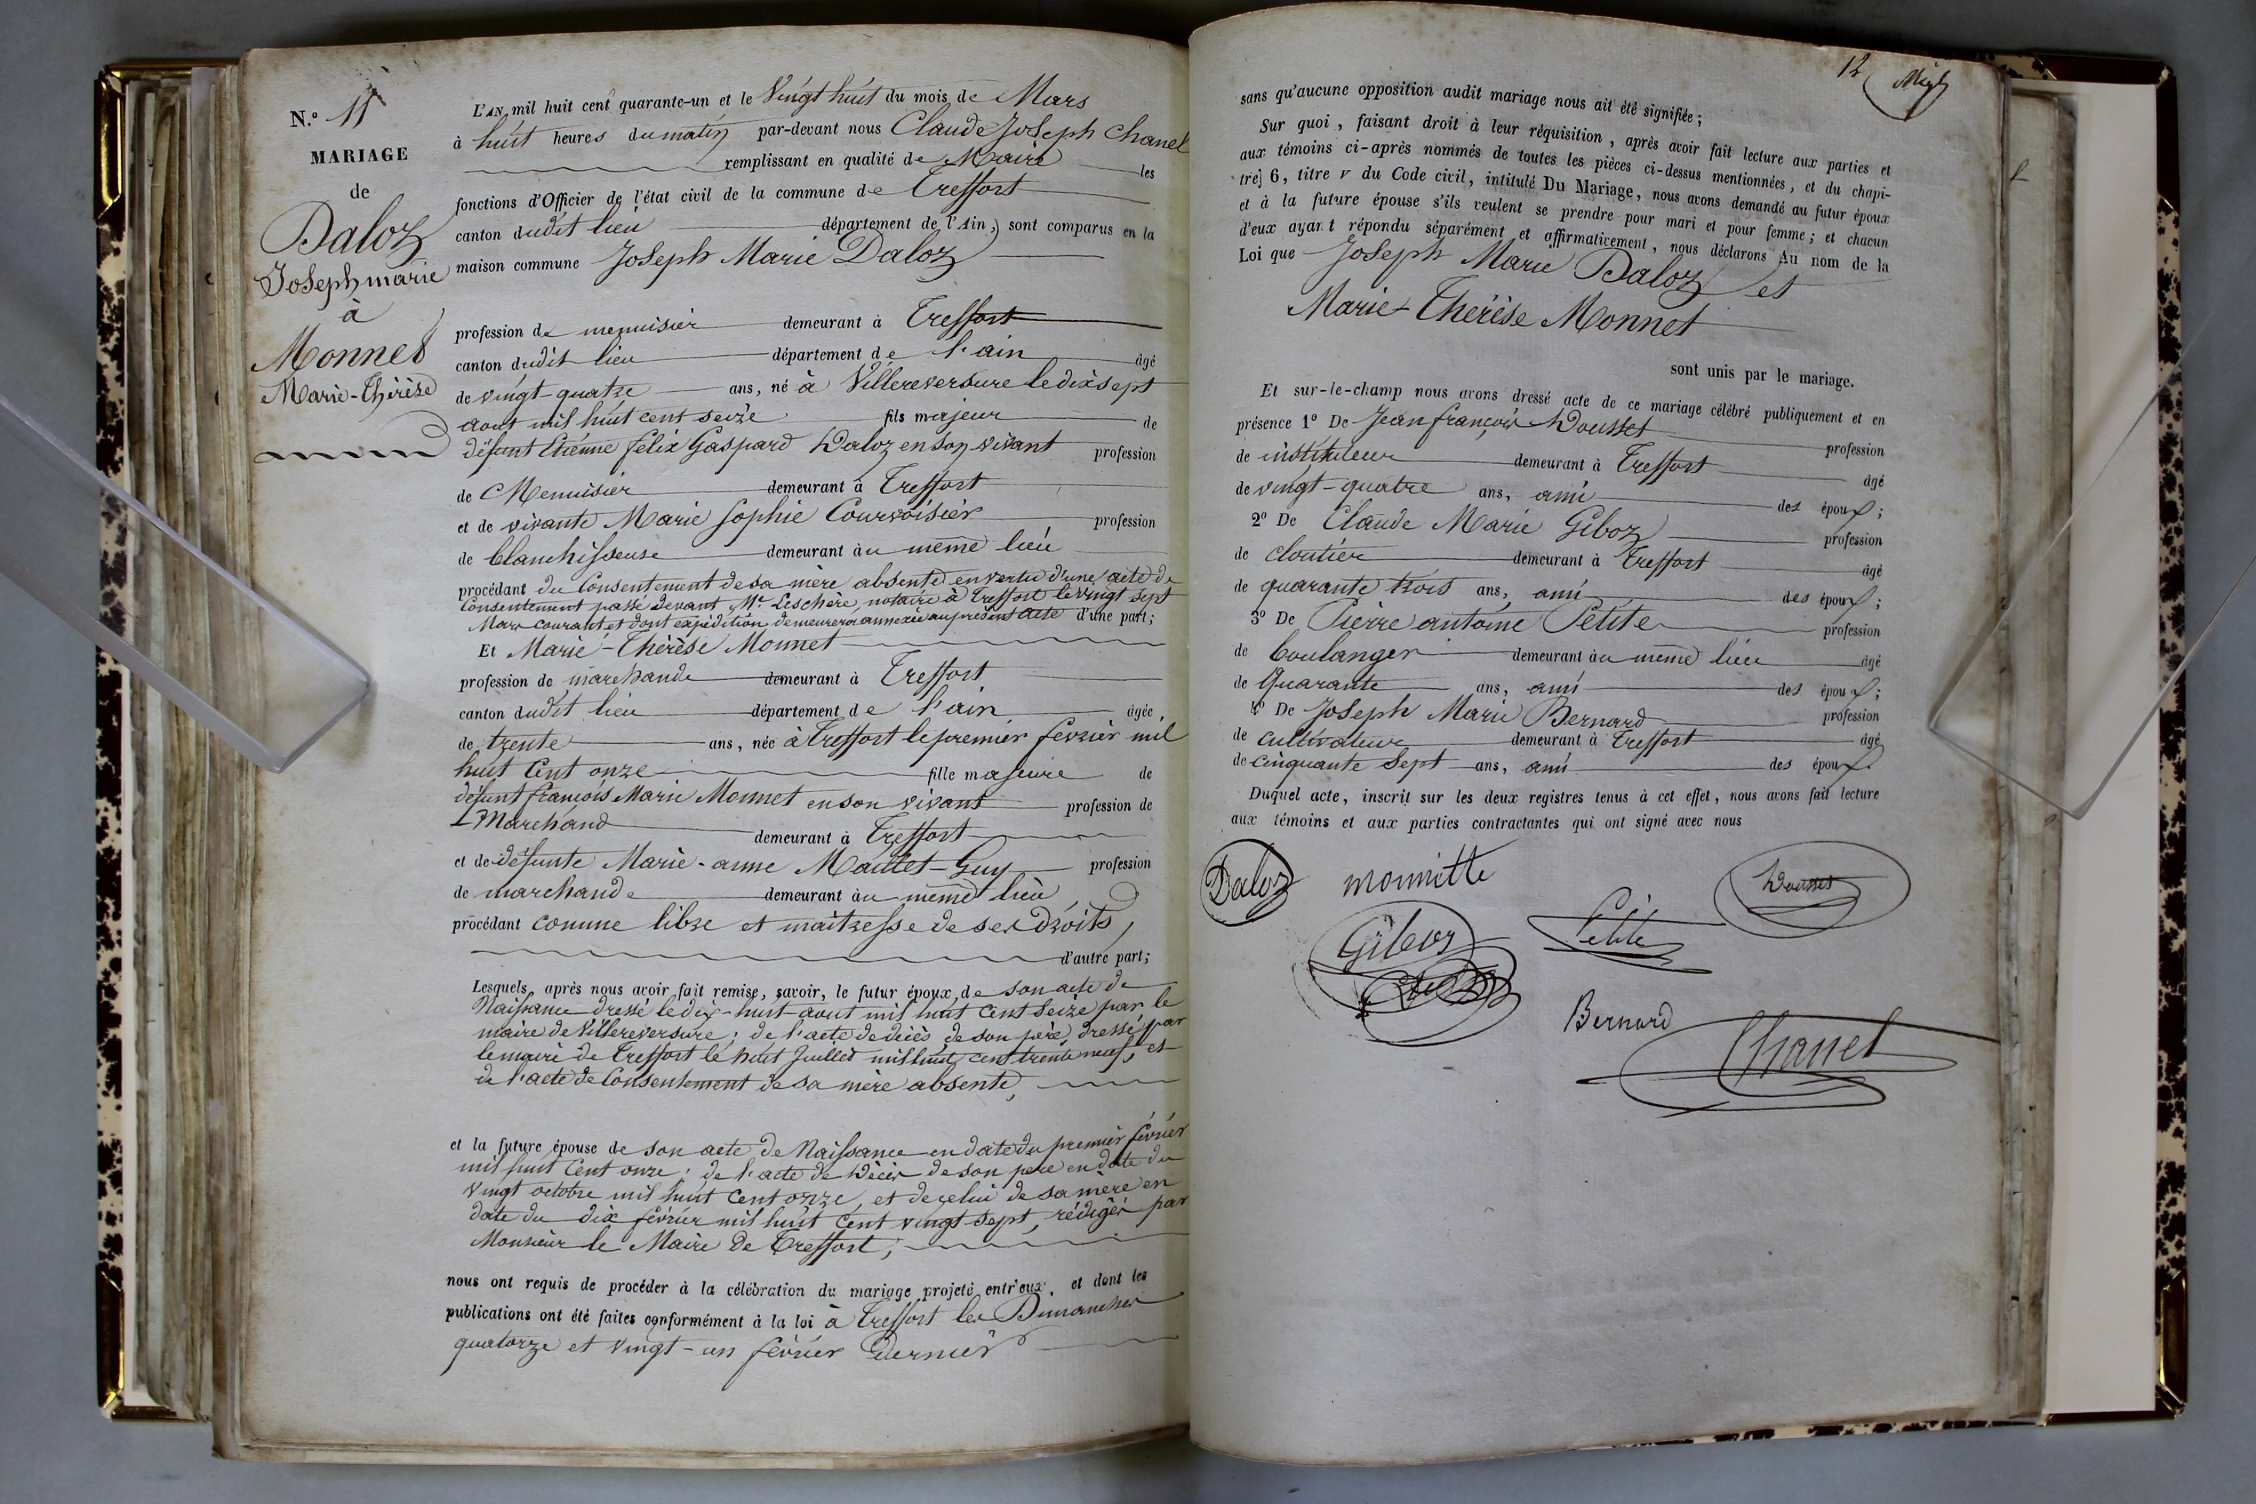 N.° 11
MARIAGE
de
Daloz
Joseph marie
à
Monnet
Marie-Thérèse
L'AN mil huit cent quarante-un et le Vingt huit du mois de Mars
à huit heures du matin par-devant nous Claude Joseph Chanel
remplissant en qualité de Maire les
fonctions d'Officier de l'état civil de la commune de Treffort
canton dudit lieu département de l'Ain, sont comparus en la
maison commune Joseph Marie Daloz
profession de menuisier demeurant à Treffort
canton dudit lieu département de l'ain âgé
de vingt quatre ans, né à Villereversure le dix sept
aout mil huit cent seize fils majeur de
défunt Etienne félix Gaspard Daloz en son vivant profession
de Menuisier demeurant à Treffort
et de vivante Marie Sophie Courvoisier profession
de blanchisseuse demeurant au même lieu
procédant du Consentement de sa mère absente en vertu d'une acte de
Consentement passé devant Mr. Leschère, notaire à Treffort le vingt sept
Mars courant et dont expédition demeurera annexée au présent acte d'une part;
Et Marie-Thérèse Monnet
profession de marchande demeurant à Treffort
canton dudit lieu département de l'ain âgée
de trente ans, née à Treffort le premier février mil
huit Cent onze fille majeure de
défunt françois Marie Monnet en son vivant profession de
Marchand demeurant à Treffort
et de défunte Marie-anne Maillet-Guy profession
de marchande demeurant au même lieu
procédant comme libre et maitresse de ses Droits,
d'autre part;
Lesquels, après nous avoir fait remise, savoir, le futur époux, de son acte de
Naissance dressé le dix-huit aout mil huit Cent Seize par le
maire de Villereversure; de l'acte de décès de son père, dressé par
le maire de Treffort le huit Juillet mil huit cent trente neuf, et
de l'acte de Consentement de sa mère absente,
et la future épouse de son acte de Naissance en date du premier février
mil huit Cent onze; de l'acte de Décès de son père en date du
vingt octobre mil huit Cent onze, et de celui de sa mère en
date du dix février mil huit Cent vingt-sept, rédigés par
Monsieur le Maire de Treffort;
nous ont requis de procéder à la célébration du mariage projeté entr'eux, et dont les
publications ont été faites conformément à la loi à Treffort les Dimanches
quatorze et vingt-un février dernier
12
sans qu'aucune opposition audit mariage nous ait été signifiée;
Sur quoi, faisant droit à leur réquisition, après avoir fait lecture aux parties et
aux témoins ci-après nommés de toutes les pièces ci-dessus mentionnées, et du chapi-
tre 6, titre V du Code civil, intitulé Du Mariage, nous avons demandé au futur époux
et à la future épouse s'ils veulent se prendre pour mari et pour femme; et chacun
d'eux ayant répondu séparément et affirmativement, nous déclarons Au nom de la
Loi que Joseph Marie Daloz et
Marie-Thérèse Monnet
sont unis par le mariage.
Et sur-le-champ nous avons dressé acte de ce mariage célébré publiquement et en
présence 1° De Jean françois Dousset profession
de instituteur demeurant à Treffort âgé
de vingt-quatre ans, ami des époux;
2° De Claude Marie Giboz profession
de cloutier demeurant à Treffort âgé
de quarante trois ans, ami des époux;
3° De Pierre antoine Petite profession
de boulanger demeurant au même lieu âgé
de Quarante ans, ami des époux;
4° De Joseph Marie Bernard profession
de cultivateur demeurant à Treffort âgé
de cinquante Sept ans, ami des époux.
Duquel acte, inscrit sur les deux registres tenus à cet effet, nous avons fait lecture
aux témoins et aux parties contractantes qui ont signé avec nous
Daloz monnitte Dousset
Giboz Petite
Bernard
Chanel